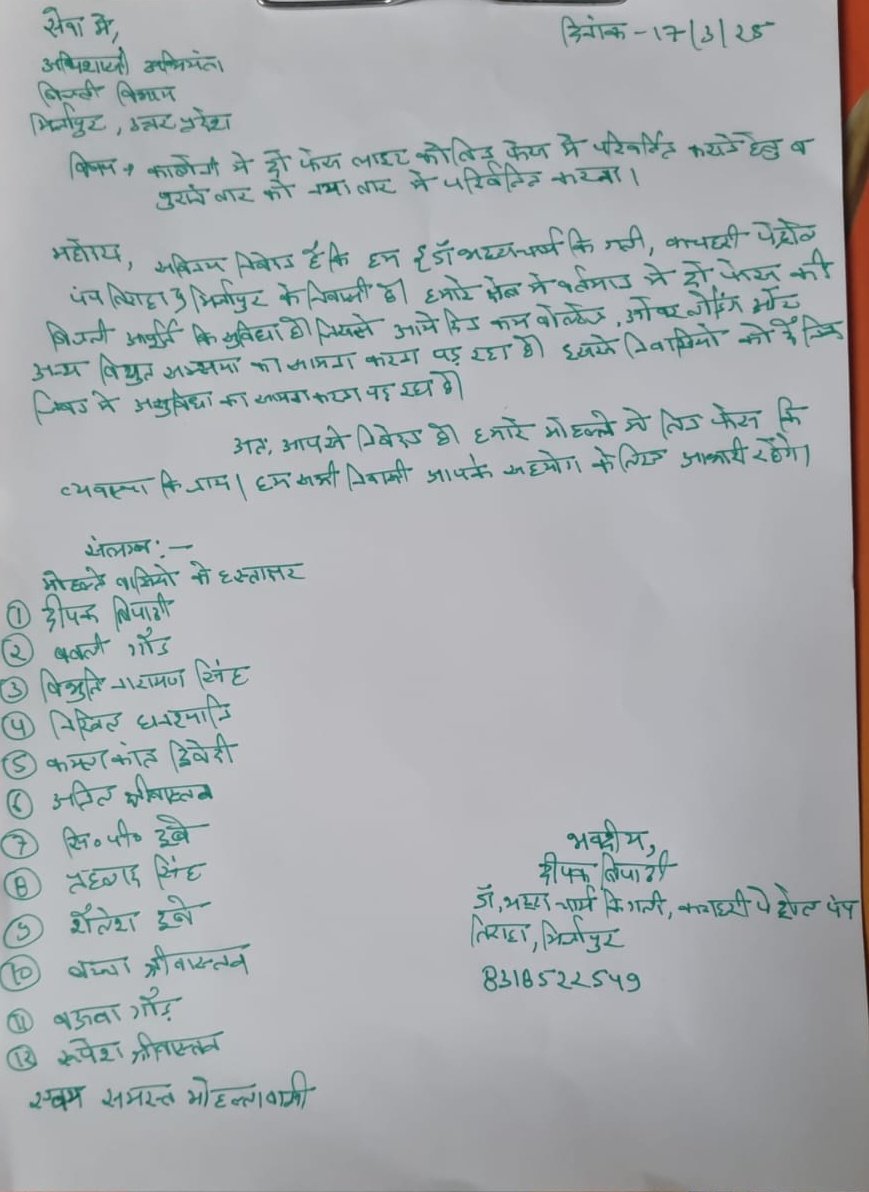 सेवा में,
दिनांक - 17/3/25
अधिशासी अभियंता
बिजली विभाग
मिर्जापुर, उत्तर प्रदेश
विषय → कालोनी मे दो फेस लाइट को तिन फेस में परिवर्तित कराने हेतु व
पुराने तार को नया तार मे परिवर्तित करना।
महोदय, सविनय निवेदन है कि हम डॉ भट्टाचार्य कि गली, कचहरी पेट्रोल
पंप तिराहा मिर्जापुर के निवासी है। हमारे क्षेत्र मे वर्तमान मे दो फेस की
बिजली आपूर्ति कि सुविधा है। जिससे आये दिन कम वोल्टेज, ओवर लोडिंग और
अन्य विद्युत समस्या का सामना करना पड़ रहा है। इससे निवासियो को दैनिक
जिवन मे असुविधा का सामना करना पड़ रहा है।
अतः आपसे निवेदन है। हमारे मोहल्ले मे तिन फेस कि
व्यवस्था कि जाय। हम सभी निवासी आपके सहयोग के लिए आभारी रहेंगे।
संलग्न :-
मोहल्ले वासियो के हस्ताक्षर
① दीपक त्रिपाठी
② बबली गौड़
③ विभुति नारायण सिंह
④ निखिल
⑤ कमलाकांत द्विवेदी
⑥ अनिल श्रीवास्तव
⑦ सि॰ पी॰ दुबे
⑧ प्रहलाद सिंह
⑨ शैलेश दुबे
⑩ बच्चा श्रीवास्तव
⑪ गौड़
⑫ रूपेश श्रीवास्तव
एवम समस्त मोहल्लावासी
भवदीय,
दीपक त्रिपाठी
डॉ, भट्टाचार्य कि गली, कचहरी पेट्रोल पंप
तिराहा, मिर्जापुर
8318522549